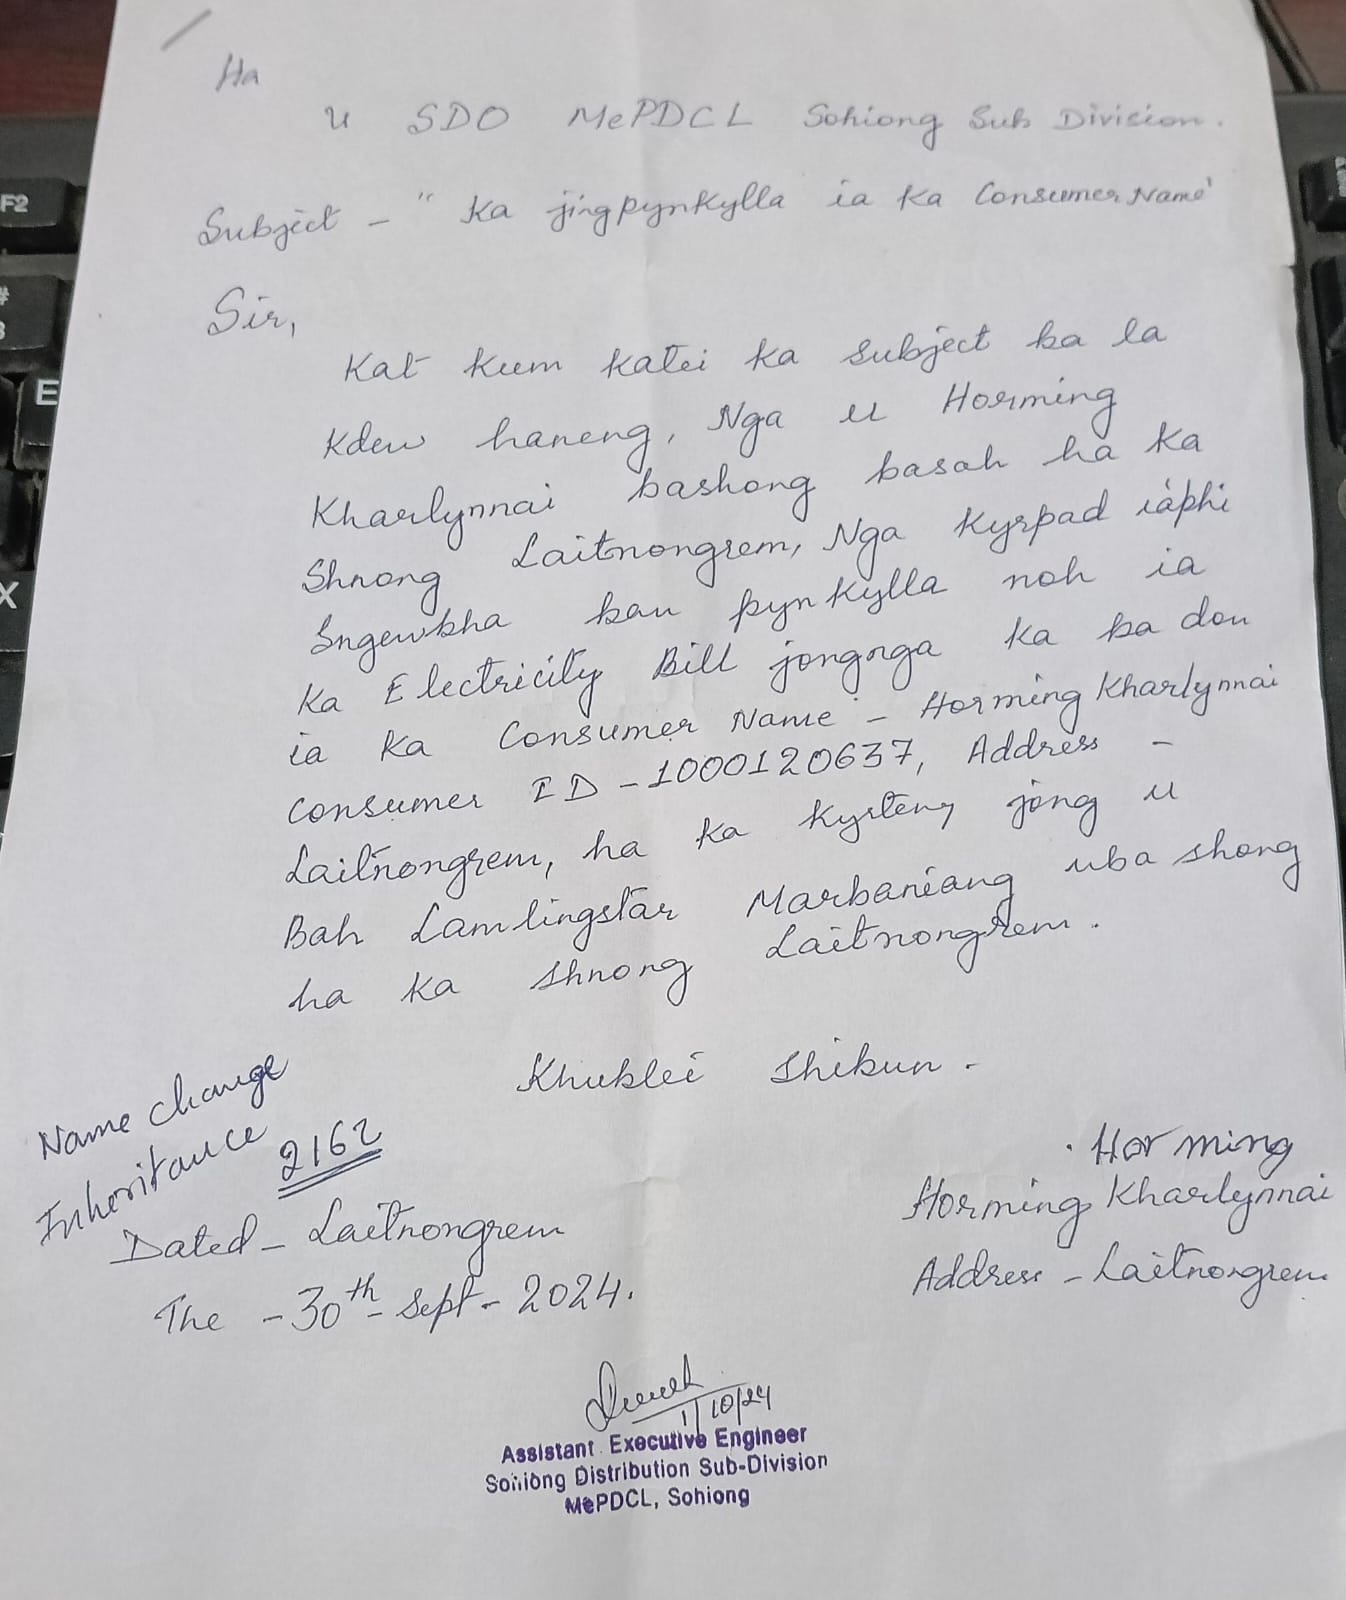 Ha
U SDO MePDCL Sohiong Sub Division.
Subject - " Ka jingpynkylla ia ka Consumer Name"
Sir,
Kat kum katei ka subject ba la
kdew haneng, Nga u Horming
Kharlynnai bashong basah ha ka
Shnong Laitnongrem, Nga Kyrpad iaphi
Sngewbha ban pynkylla noh ia
ka Electricity Bill jongnga ka ba don
ia ka Consumer Name - Horming Kharlynnai
Consumer ID - 1000120637, Address -
Laitnongrem, ha ka kyrteng jong u
Bah Lamlingstar Marbaniang uba shong
ha ka shnong Laitnongrem.
Khublei Shibun.
Name change
Inheritance
2162
Dated - Laitnongrem
The - 30th - Sept - 2024.
Horming
Horming Kharlynnai
Address - Laitnongrem
1/10/24
Assistant Executive Engineer
Sohiong Distribution Sub-Division
MePDCL, Sohiong
F2
#
3
E
X